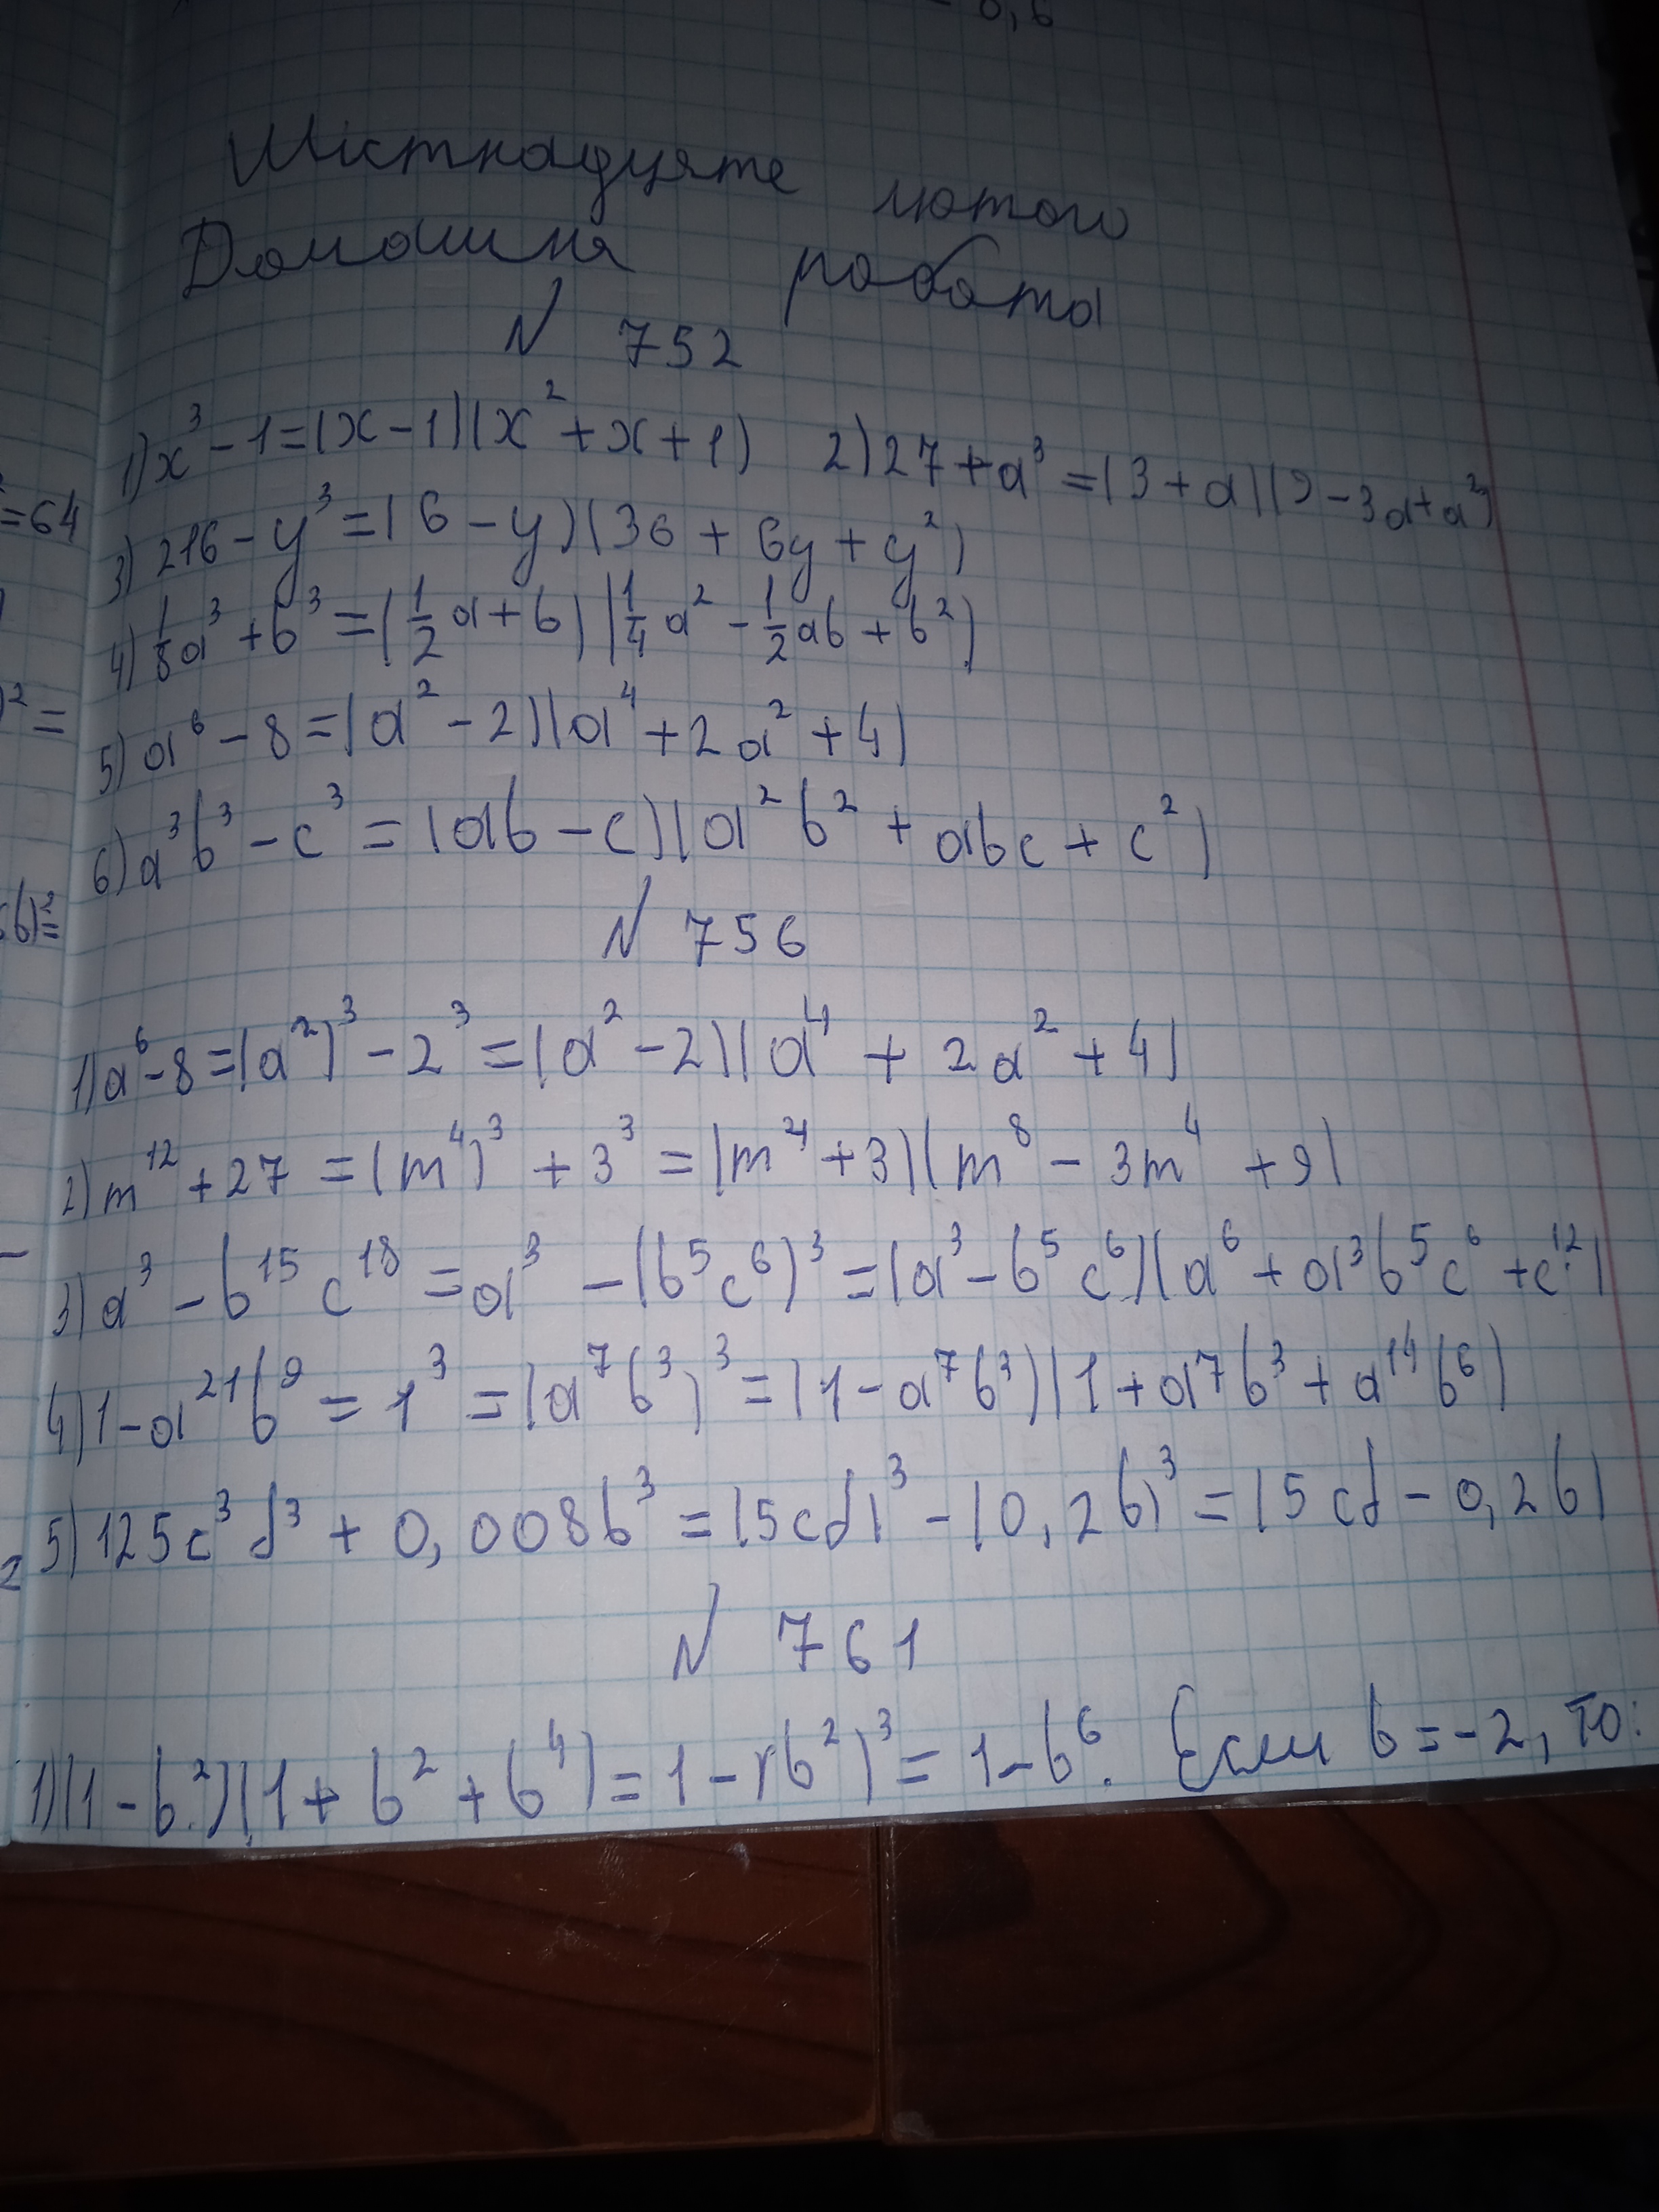 - 0,6
Шістнадцяте лютого
Домашня робота
N 752
1) x³ - 1 = (x - 1)(x² + x + 1) 2) 27 + a³ = (3 + a)(9 - 3a + a²)
3) 216 - y³ = (6 - y)(36 + 6y + y²)
4) 1/8 a³ + b³ = (1/2 a + b)(1/4 a² - 1/2 ab + b²)
5) a⁶ - 8 = (a² - 2)(a⁴ + 2a² + 4)
6) a³b³ - c³ = (ab - c)(a²b² + abc + c²)
N 756
1) a⁶ - 8 = (a²)³ - 2³ = (a² - 2)(a⁴ + 2a² + 4)
2) m¹² + 27 = (m⁴)³ + 3³ = (m⁴ + 3)(m⁸ - 3m⁴ + 9)
3) a³ - b¹⁵c¹⁸ = a³ - (b⁵c⁶)³ = (a³ - b⁵c⁶)(a⁶ + a³b⁵c⁶ + c¹²)
4) 1 - a²¹b⁹ = 1³ = (a⁷b³)³ = (1 - a⁷b³)(1 + a⁷b³ + a¹⁴b⁶)
5) 125c³d³ + 0,008b³ = (5cd)³ - (0,2b)³ = (5cd - 0,2b)
N 761
1) (1 - b²)(1 + b² + b⁴) = 1 - (b²)³ = 1 - b⁶. Если b = -2, то:
=64
)² =
b)² =
2